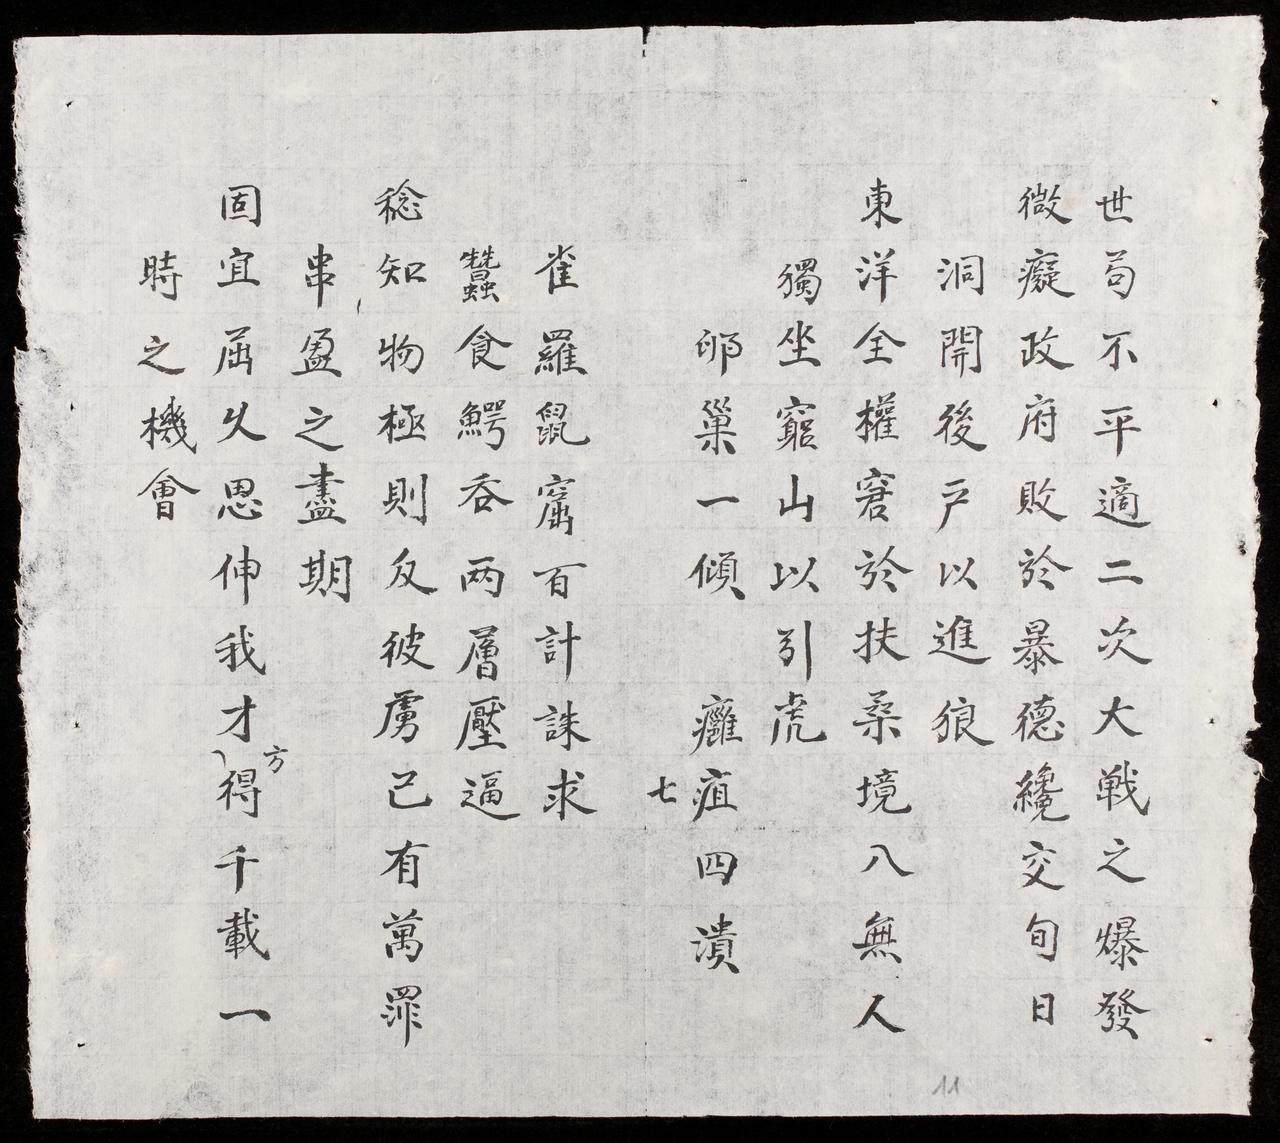 世苟不平適二次大戦之爆發
微癡政府敗於暴德纔交旬日
洞開後戸以進狼
東洋全權窘於扶桑境八無人
獨坐窮山以引虎
卵巢一傾 癰疽四潰
七
雀羅鼠窟百計誅求
蠶食鰐呑两層壓逼
稔知物極則反彼虜已有萬罪
串盈之盡期
固宜屈久思伸我才得千載一
方
時之機會
11